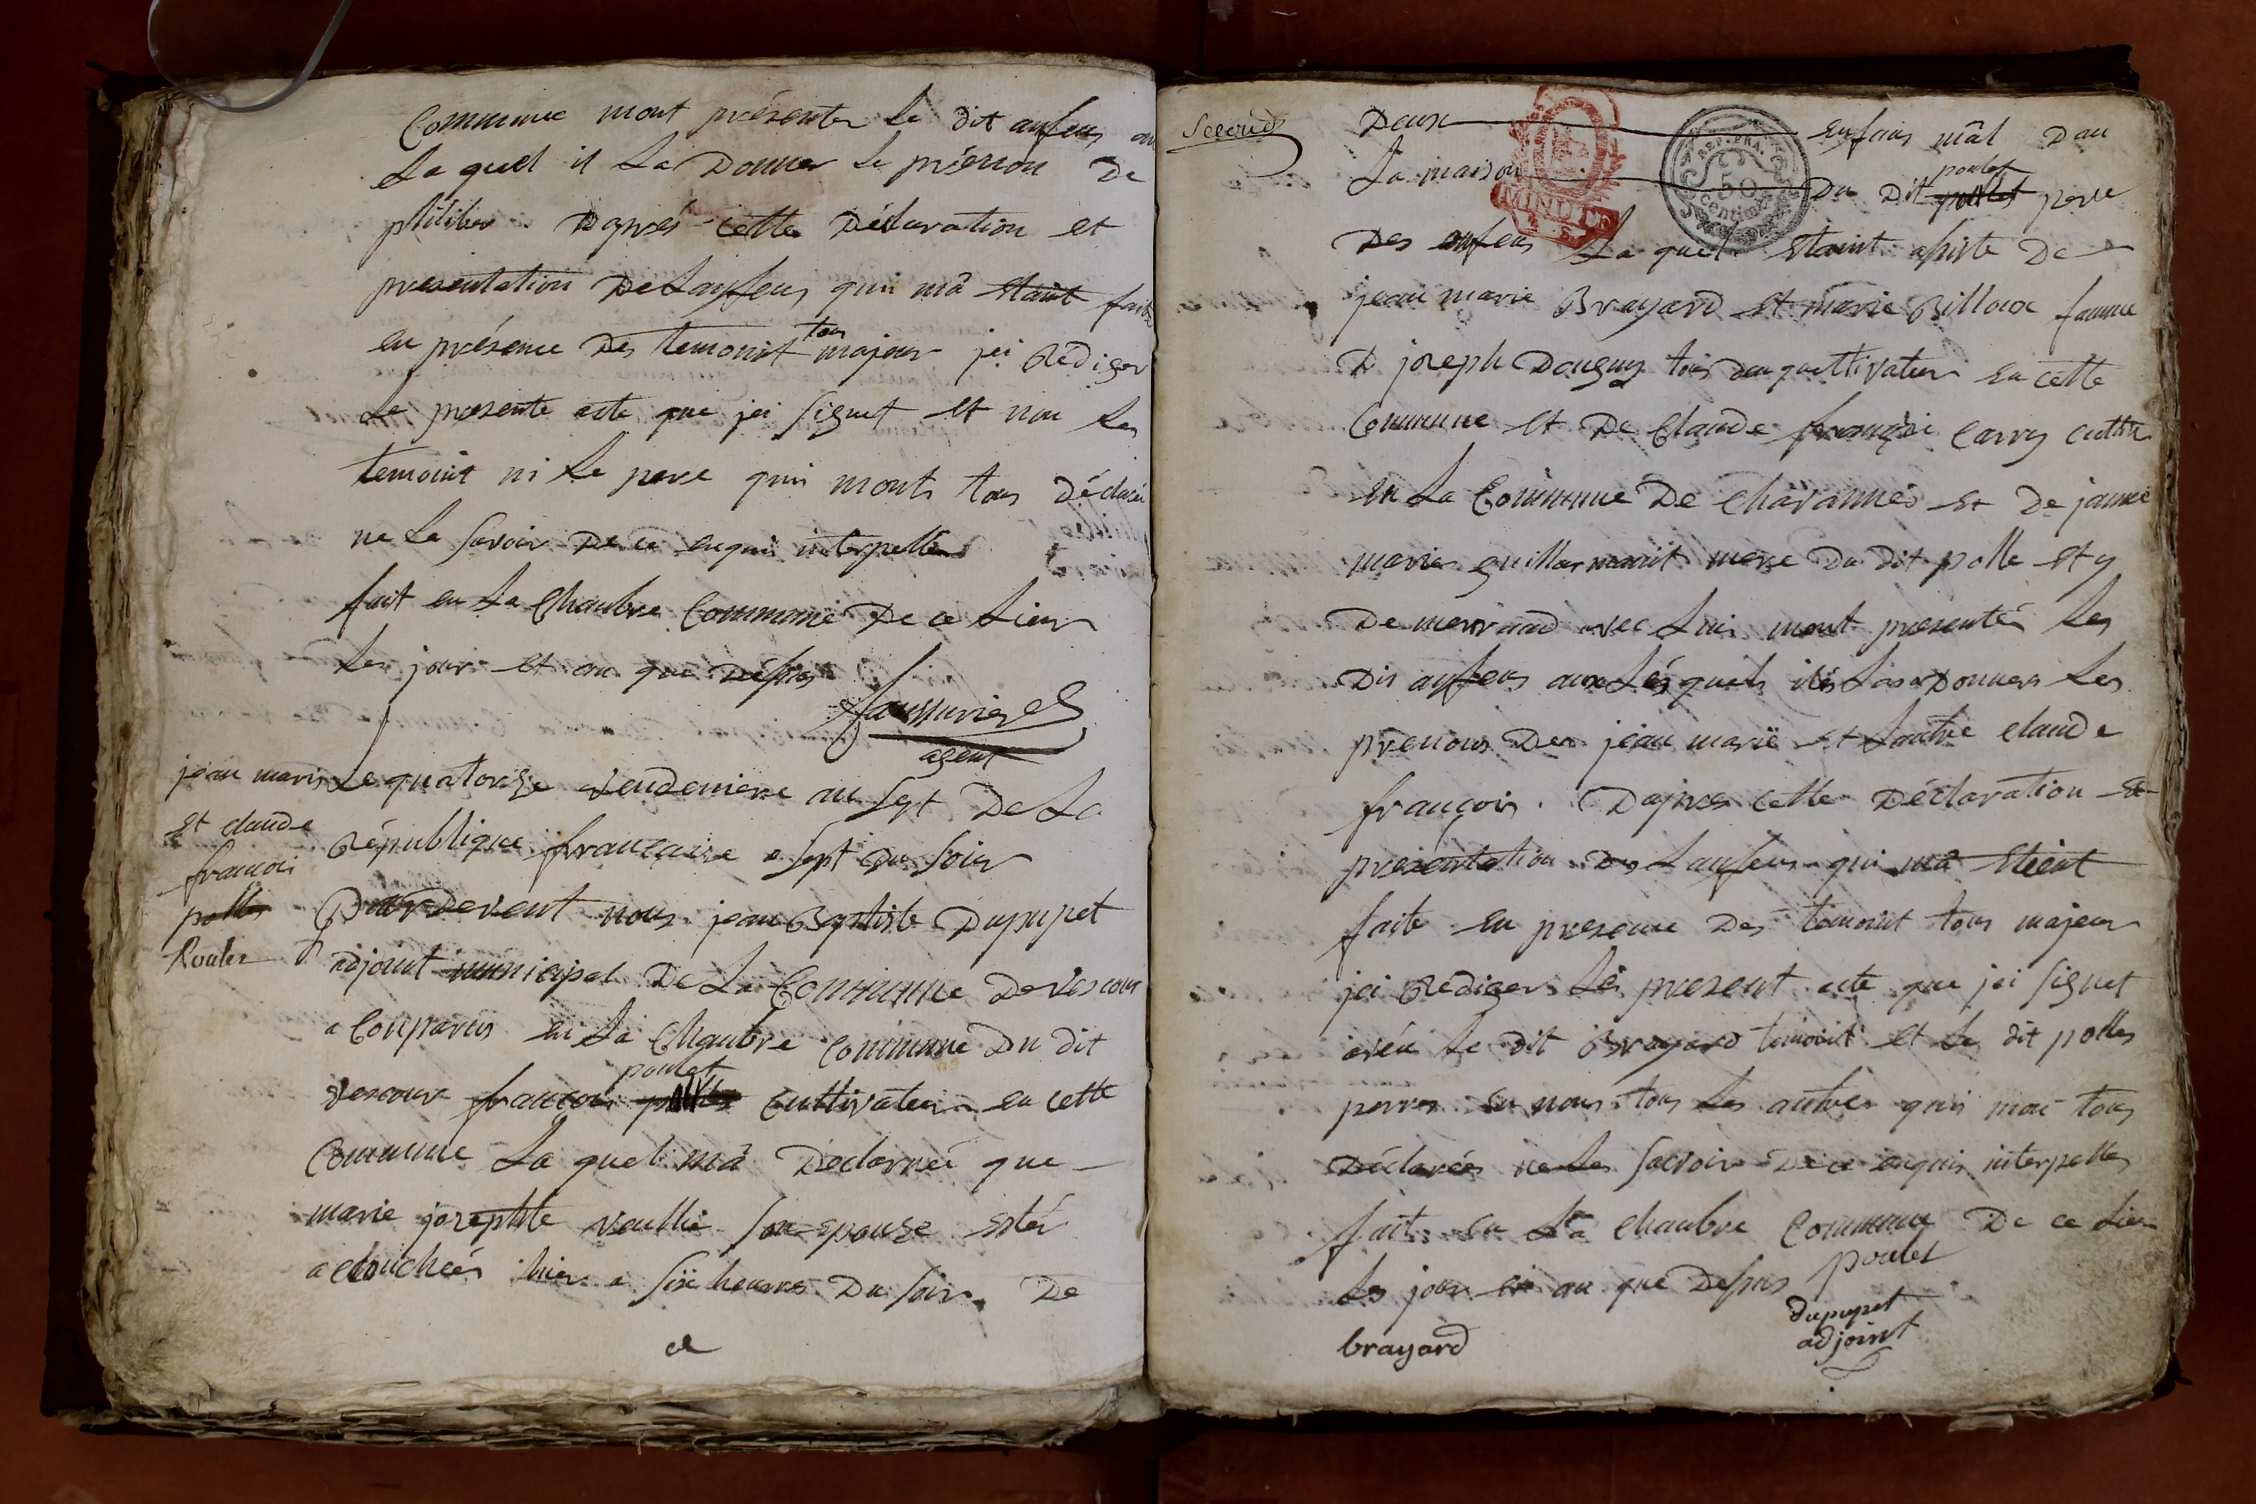 Commune mont présenter le dit anfens au
la quel il La Donner le prénon De
philiber. Daprés cette Déclaration et
presentation De Lanfens qui mà Etaint faite
en présence Des temonit tous majeur jei Rédiger
Le presente acte que jei signet et non les
temoint ni le pere qui monts tous Déclaré
ne le savoir De ce enquis interpelle
fait en la Chambre Commune De ce Lieu
Les jour et an que Désus
agent
jean marie
et claude
francoi
polles
Poulet
Le quatorze vendemiere an sept De La
République francaise a sept Du soir
Pardevent nous jean Baptiste Dupupet
adjoint municipal De La Commune Devescour
a Comparus en La Chambre Commune Du dit
vescour francoi poulet Cultivateur en cette
Commune La quel mà Declarréé que
marie josephte veullie son epouse estér
acLouchéés hier a six heures Du soir De
Second
Deux enfans mâl Dan
La maison Du Dit poulet pere
Des enfens La quel Etaint assiste De
jean marie Brayard et marie Billoux famme
D joseph Donguy tous deu quettivateur en cette
Commune et De Claude françoi Carry cultiv
en La Commune De Chavannes et De janne
marie guillarmenit mere Du Dit polle et y
De merraud avec Lui mont presentés Les
Dis anfens aux Lés quels ils Las Donners Les
prenons Des jean marie et Lautre claude
françois. Dapres cette Déclaration et
presentation Des Lanfens qui mà Eteint
faite en presence Des temoint tous majeur
jei Rédiger Lés present acte que jei signet
avéc le dit Brayard timoint et le dit polles
perres en nous tous Les autre qui mai tous
Déclarées ne les savoir De ce enquis interpelles
fait en La Chambre Commune De ce Lieu
Les jour et an que Desus poulet
dupupet
adjoint
brayard